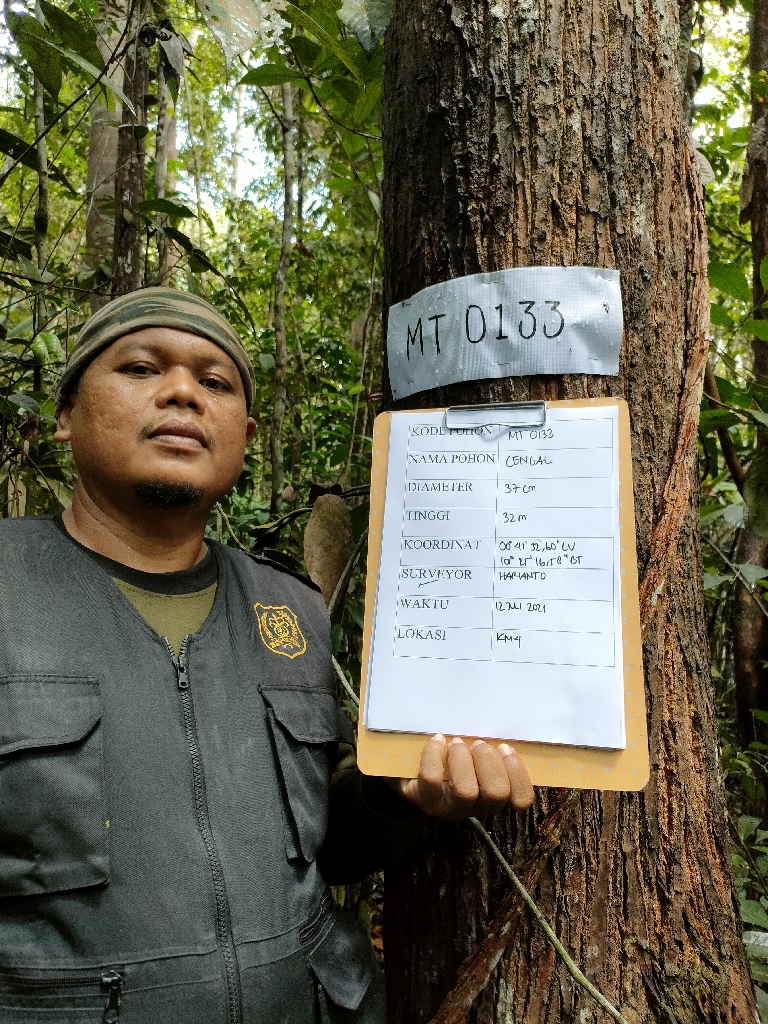 MT 0133
KODE POHON MT 0133
NAMA POHON CENGAL
DIAMETER 37 cm
TINGGI 32 m
KOORDINAT 00° 41' 32,60" LU
10° 21' 16,58" BT
SURVEYOR HARIANTO
WAKTU 12 JULI 2021
LOKASI KM 4